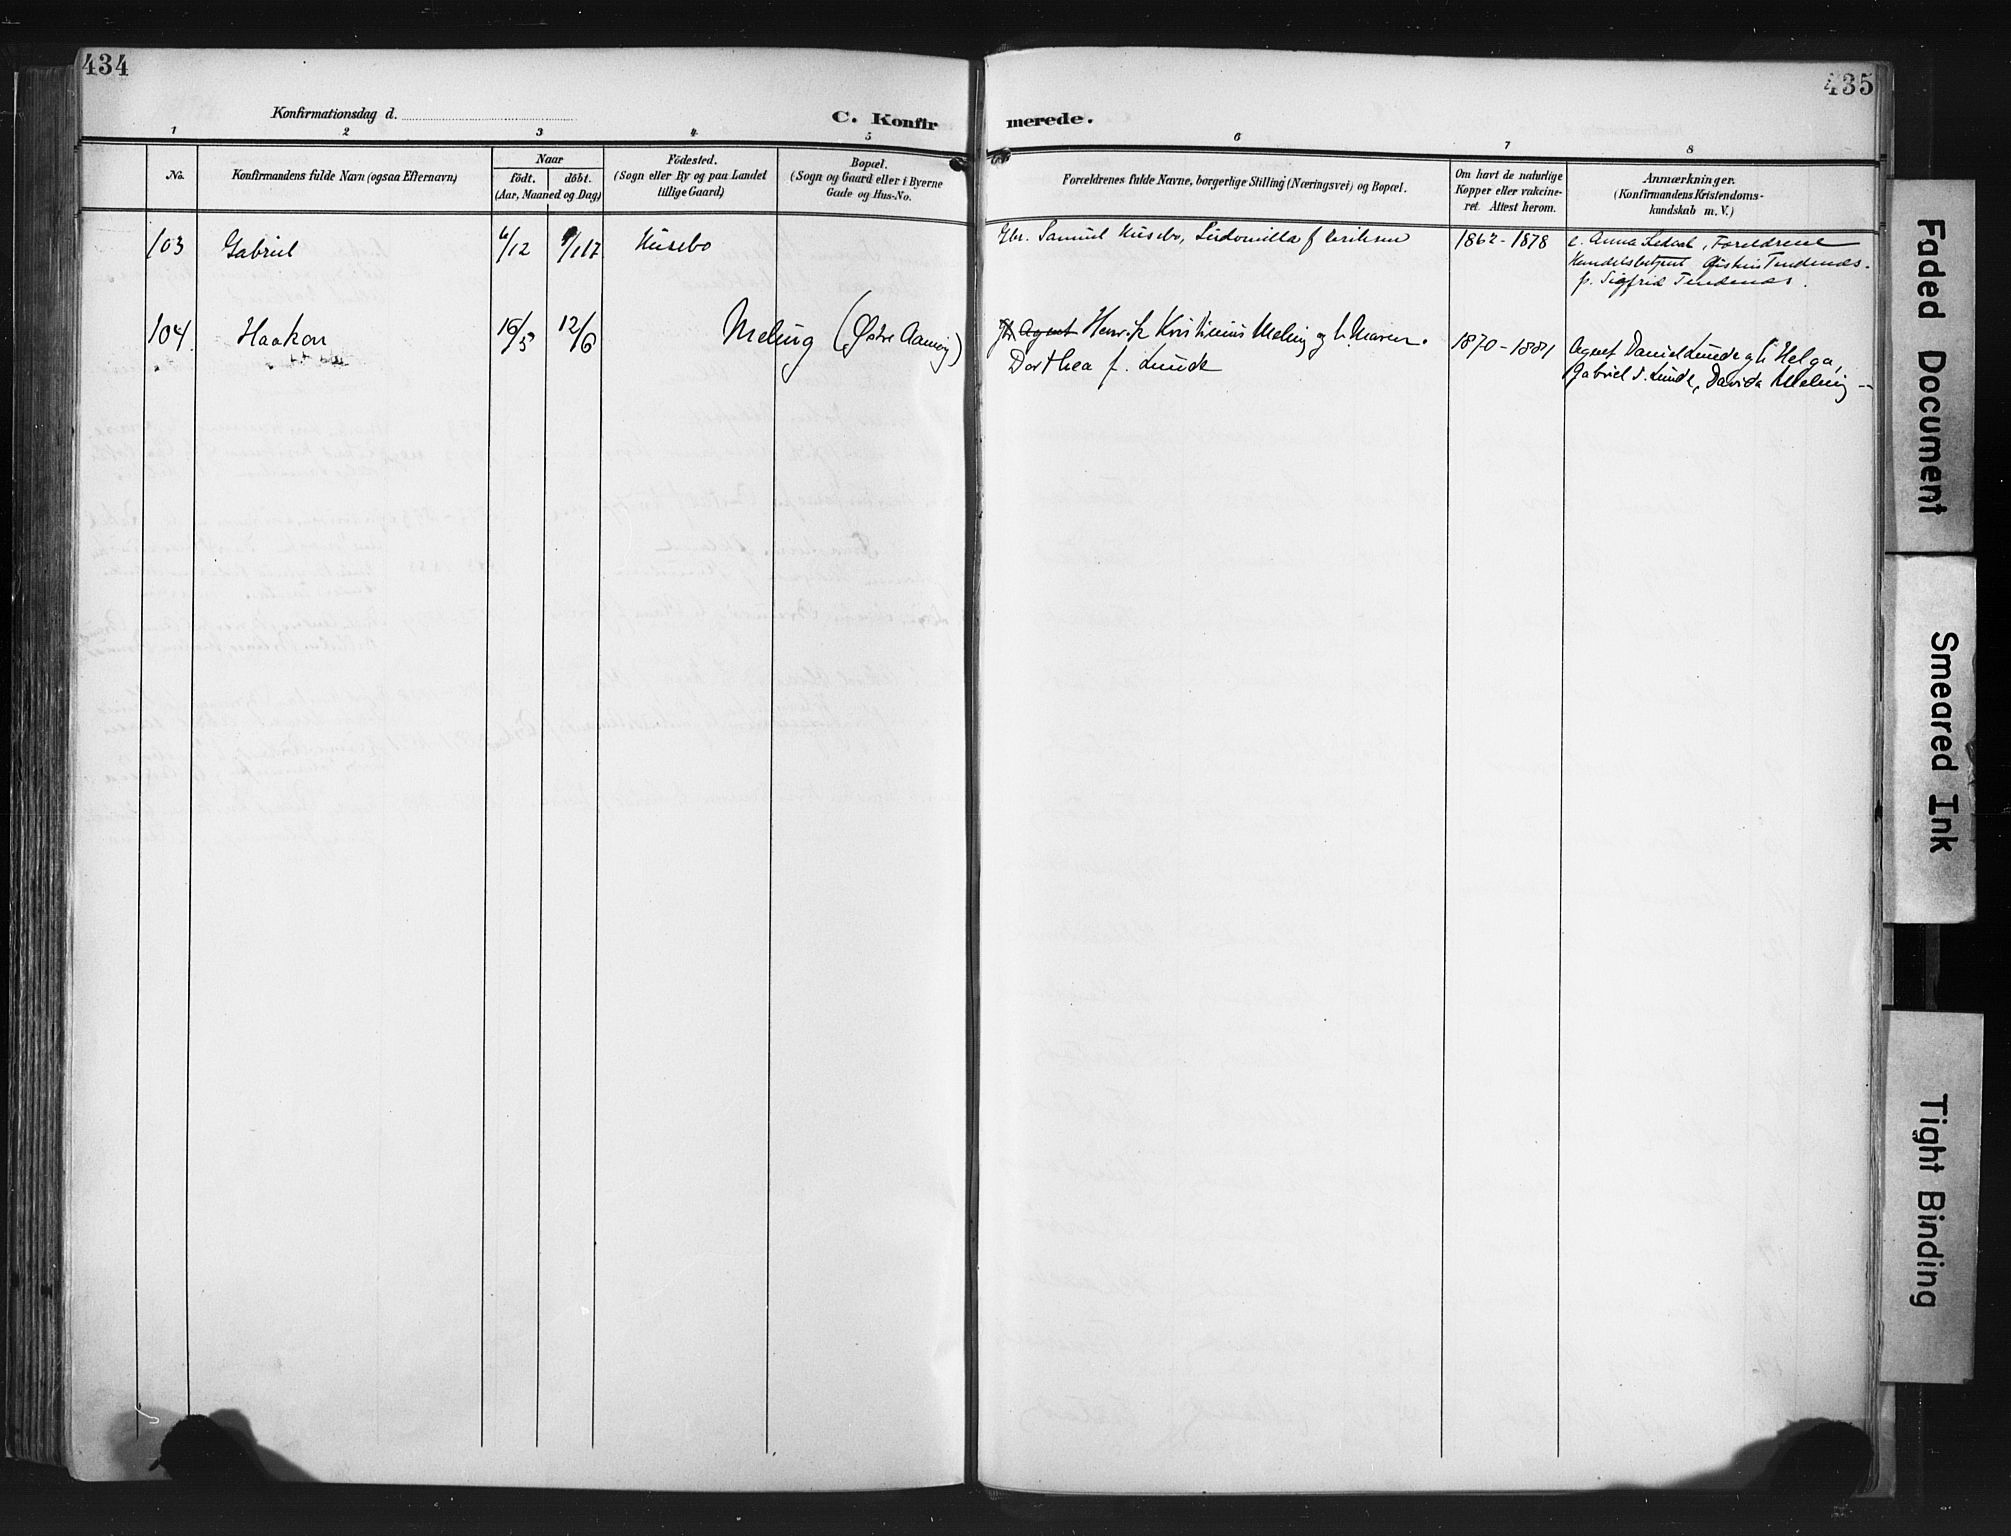 434
435
Konfirmationsdag d.
C. Konfir
merede.
1
2
3
4
5
6
7
8
No.
Konfirmandens fulde Navn (ogsaa Efternavn)
Naar
födt.
döbt.
(Aar, Maaned og Dag)
Födested.
(Sogn eller By og paa Landet
tillige Gaard)
Bopæl.
(Sogn og Gaard eller i Byerne
Gade og Hus-No.
Forældrenes fulde Navne, borgerlige Stilling (Næringsvei) og Bopæl.
Om havt de naturlige
Kopper eller vakcine-
ret. Attest herom.
Anmærkninger.
(Konfirmandens Kristendoms-
kundskab m. V.)
103
Gabriel
6/12
Husebø
Gbr. Samuel Husebø, Ludomilla f
1862 - 1878
Anna Ledaal, Forældrene
Tendenes.
f. Sigfrid Tendenes.
104
Haakon
16/5
12/6
Meling (Østre Aamøy)
Agent Henrik Kristinius Meling og h. Maren
Dorthea f. Lunde
1870 - 1881
Agent Daniel Lunde og h Helga,
Gabriel S. Lunde, Davida Meling
Faded Document
Smeared Ink
Tight Binding